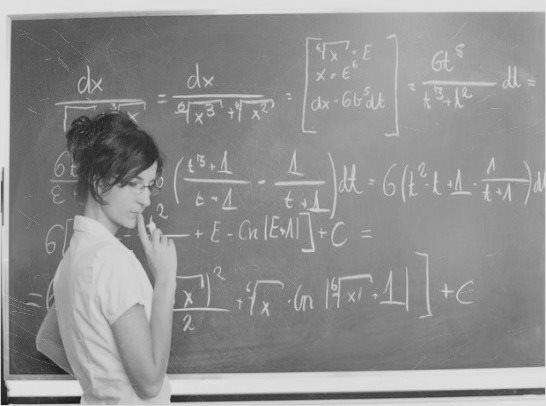 dx/(√ ∛x) = dx/(⁶√x³ + ⁶√x²) = [⁶√x = t x = t⁶ dx = 6t⁵dt] = 6t⁵/(t³+t²) dt =
6t (t³+1/t+1 - 1/t+1)dt = 6(t²-t+1-1/t+1)d
6[ ² + t - ln|t+1|] + C =
= x)²/2 + ⁶√x - ln|⁶√x + 1|] + C